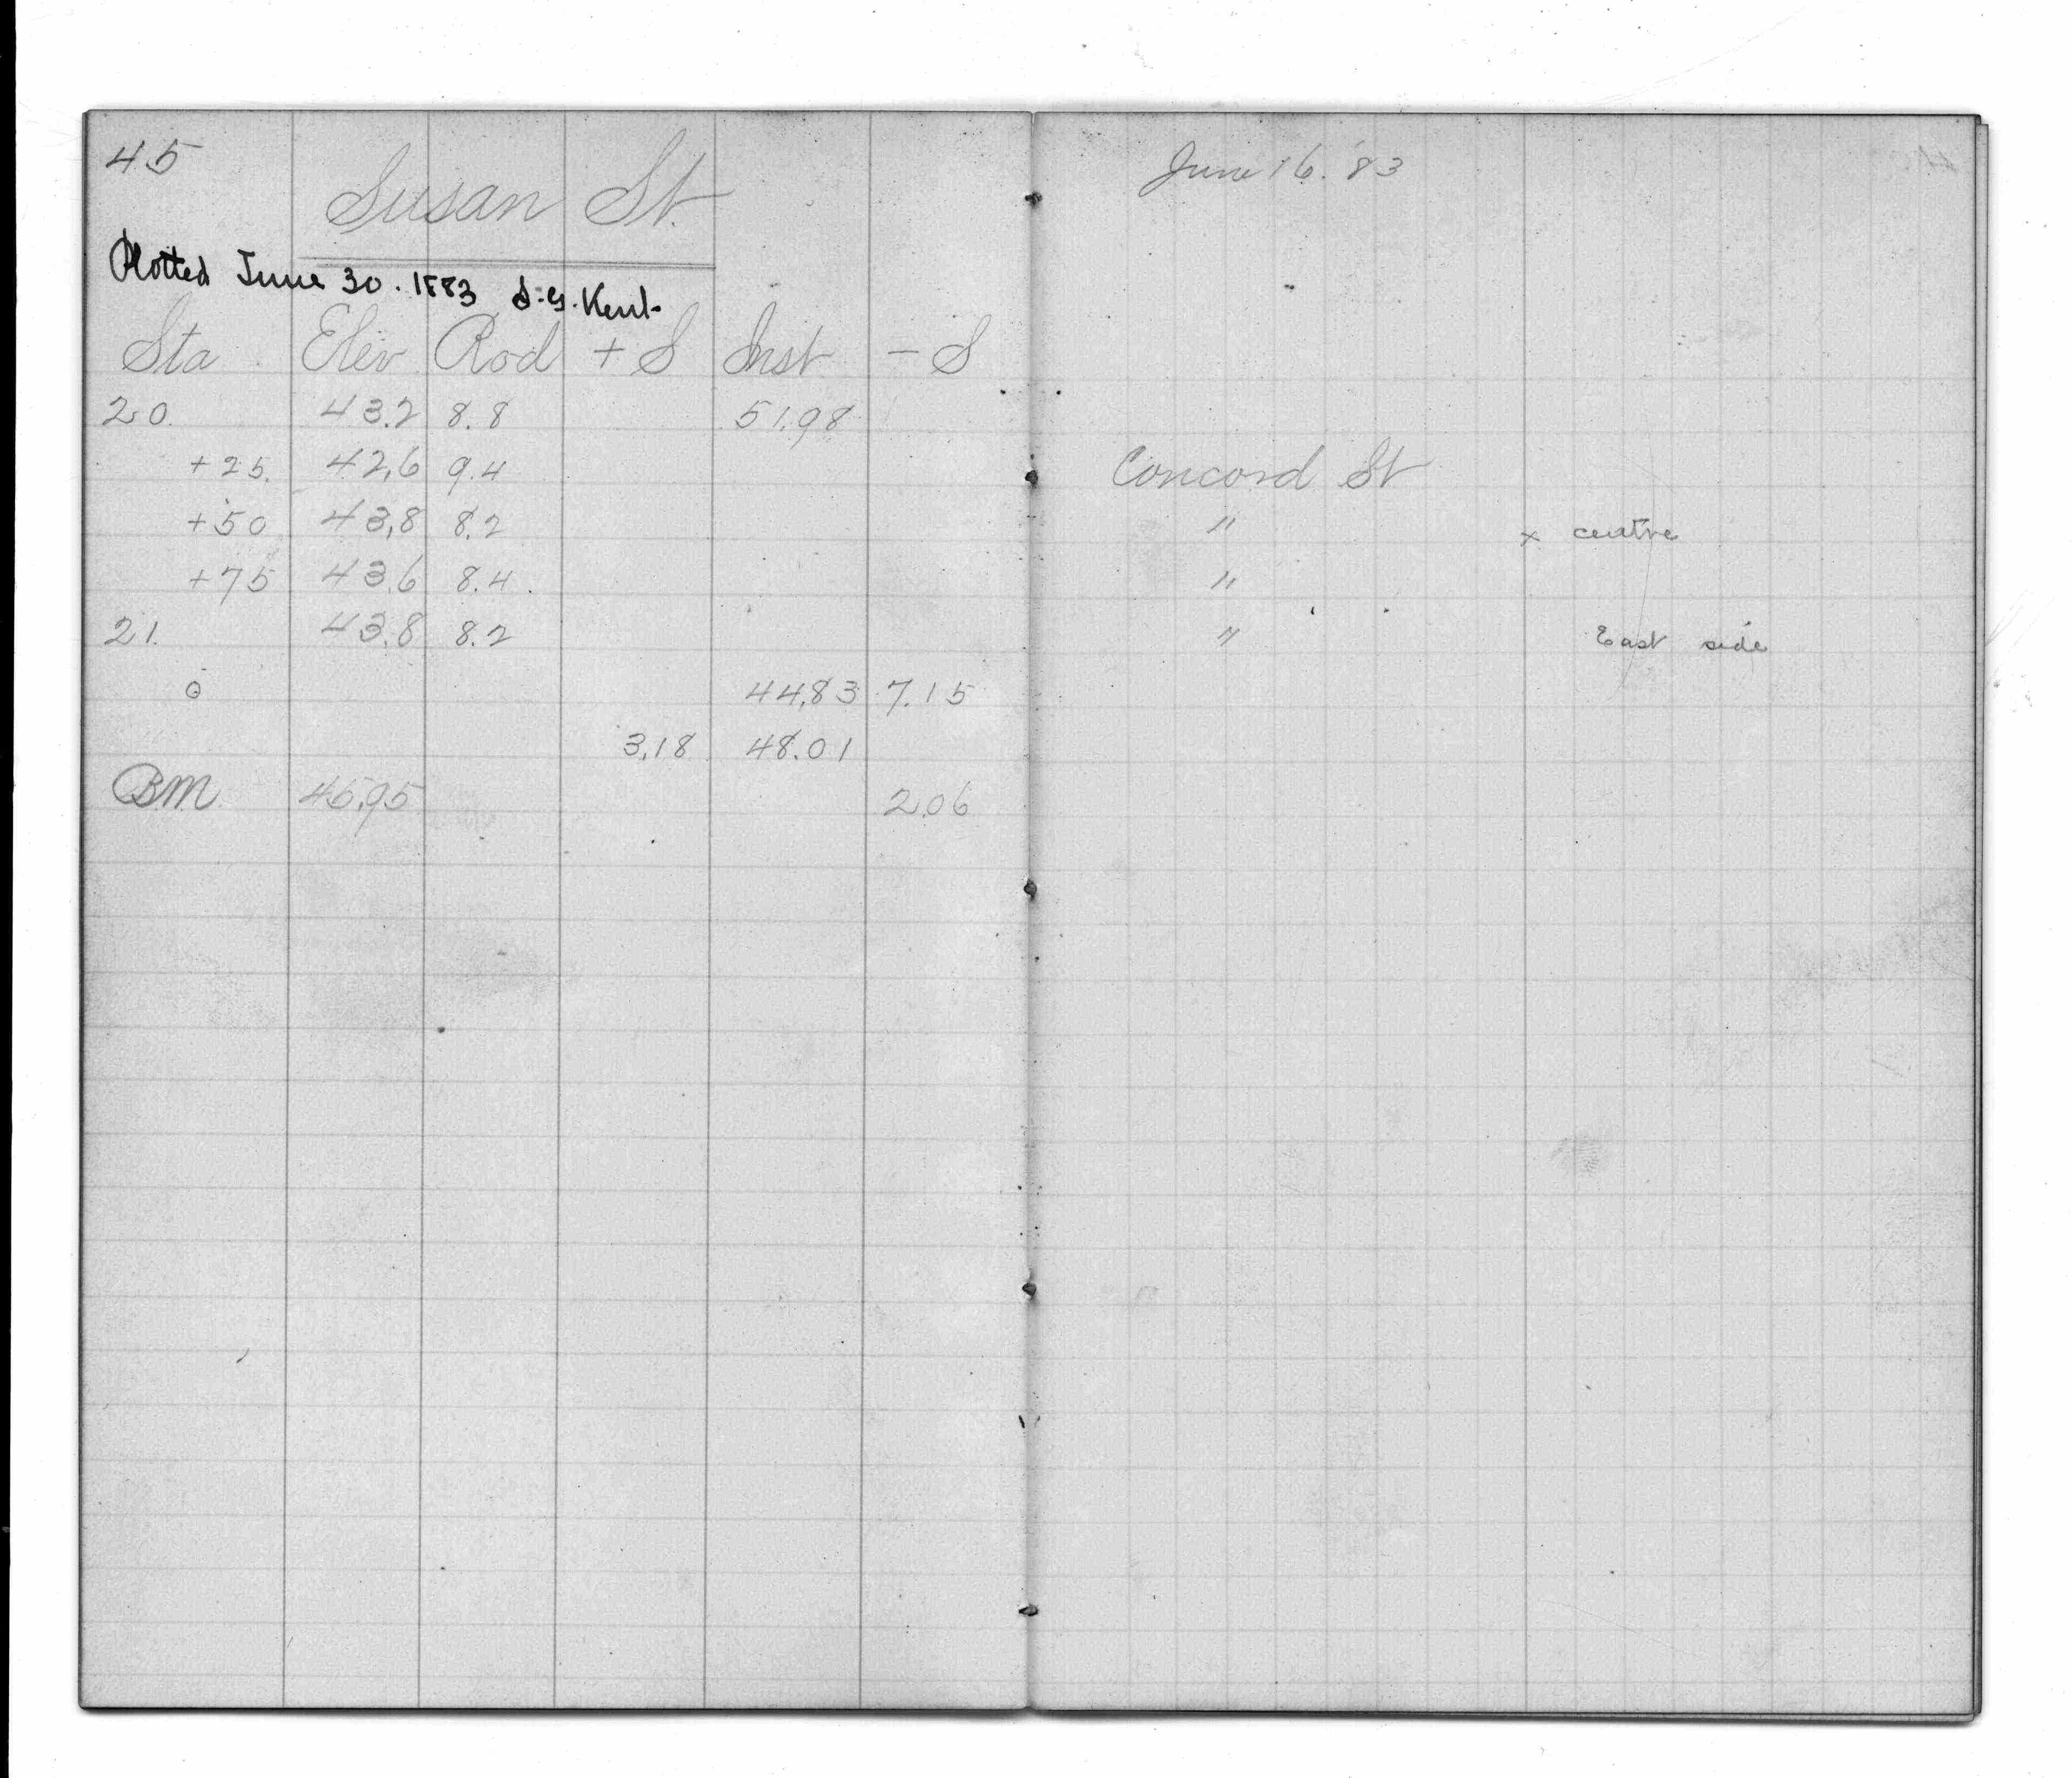 45
Susan St.
Plotted June 30. 1883 S. G. Kent.
Sta Elev Rod + S Inst - S
20. 43.2 8.8 51.98
+25. 42.6 9.4
+50 43.8 8.2
+75 43.6 8.4.
21. 43.8 8.2
o 44.83 7.15
3.18 48.01
BM 45.95 2.06
June 16. '83
Concord St
" x centre
"
" East side